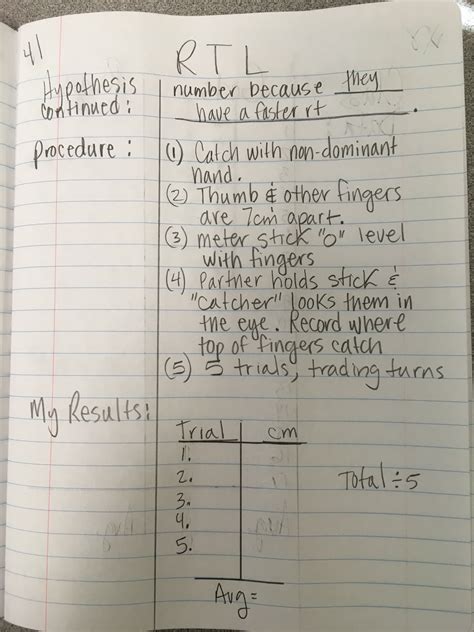 41
RTL
Hypothesis continued: number because they
have a faster rt.
Procedure: (1) Catch with non-dominant
hand.
(2) Thumb & other fingers
are 7cm apart.
(3) meter stick "0" level
with fingers
(4) Partner holds stick &
"catcher" looks them in
the eye. Record where
top of fingers catch
(5) 5 trials, trading turns
My Results:
Trial cm
1.
2.
3.
4.
5.
Total ÷ 5
Avg =